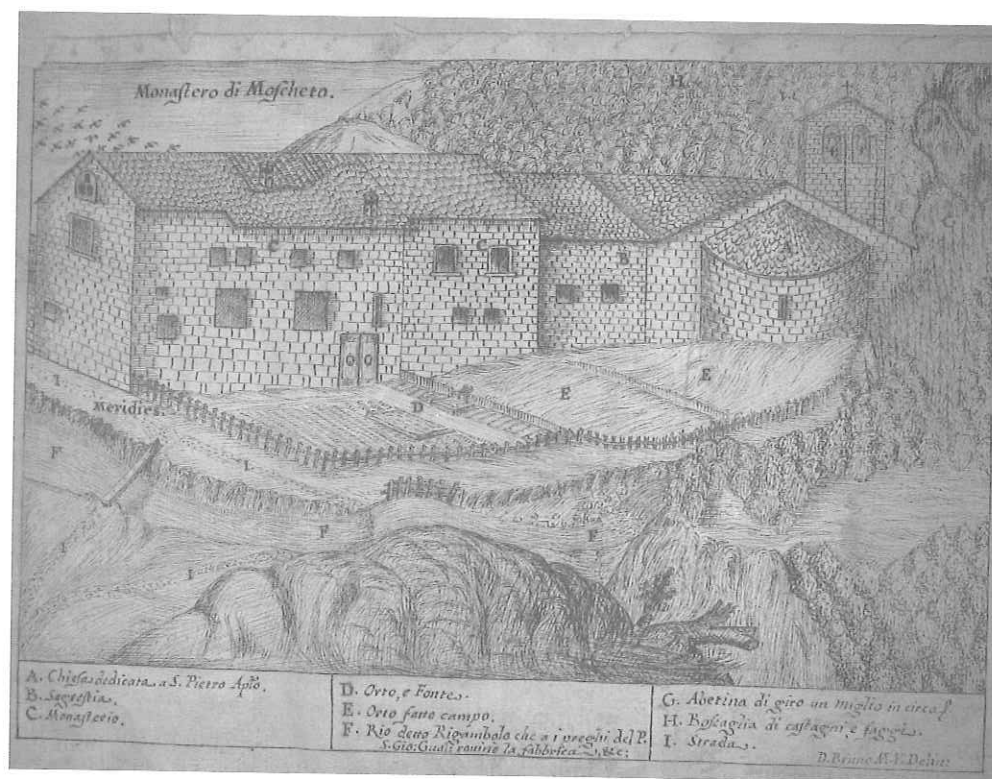 Monastero di Moscheto.
H
C
C
B
A
I
Meridies.
D
E
E
F
I
F
F
I
I
A. Chiesa dedicata a S. Pietro Aplo.
B. Sagrestia.
C. Monasterio.
D. Orto, e Fonte.
E. Orto fatto campo.
F. Rio detto Rigambolo che a i preghi del P.
S. Gio: Gual: rovinò la fabbrica &c:
G. Abetina di giro un miglio in circa
H. Boscaglia di castagni e faggi.
I. Strada.
D. Bruno